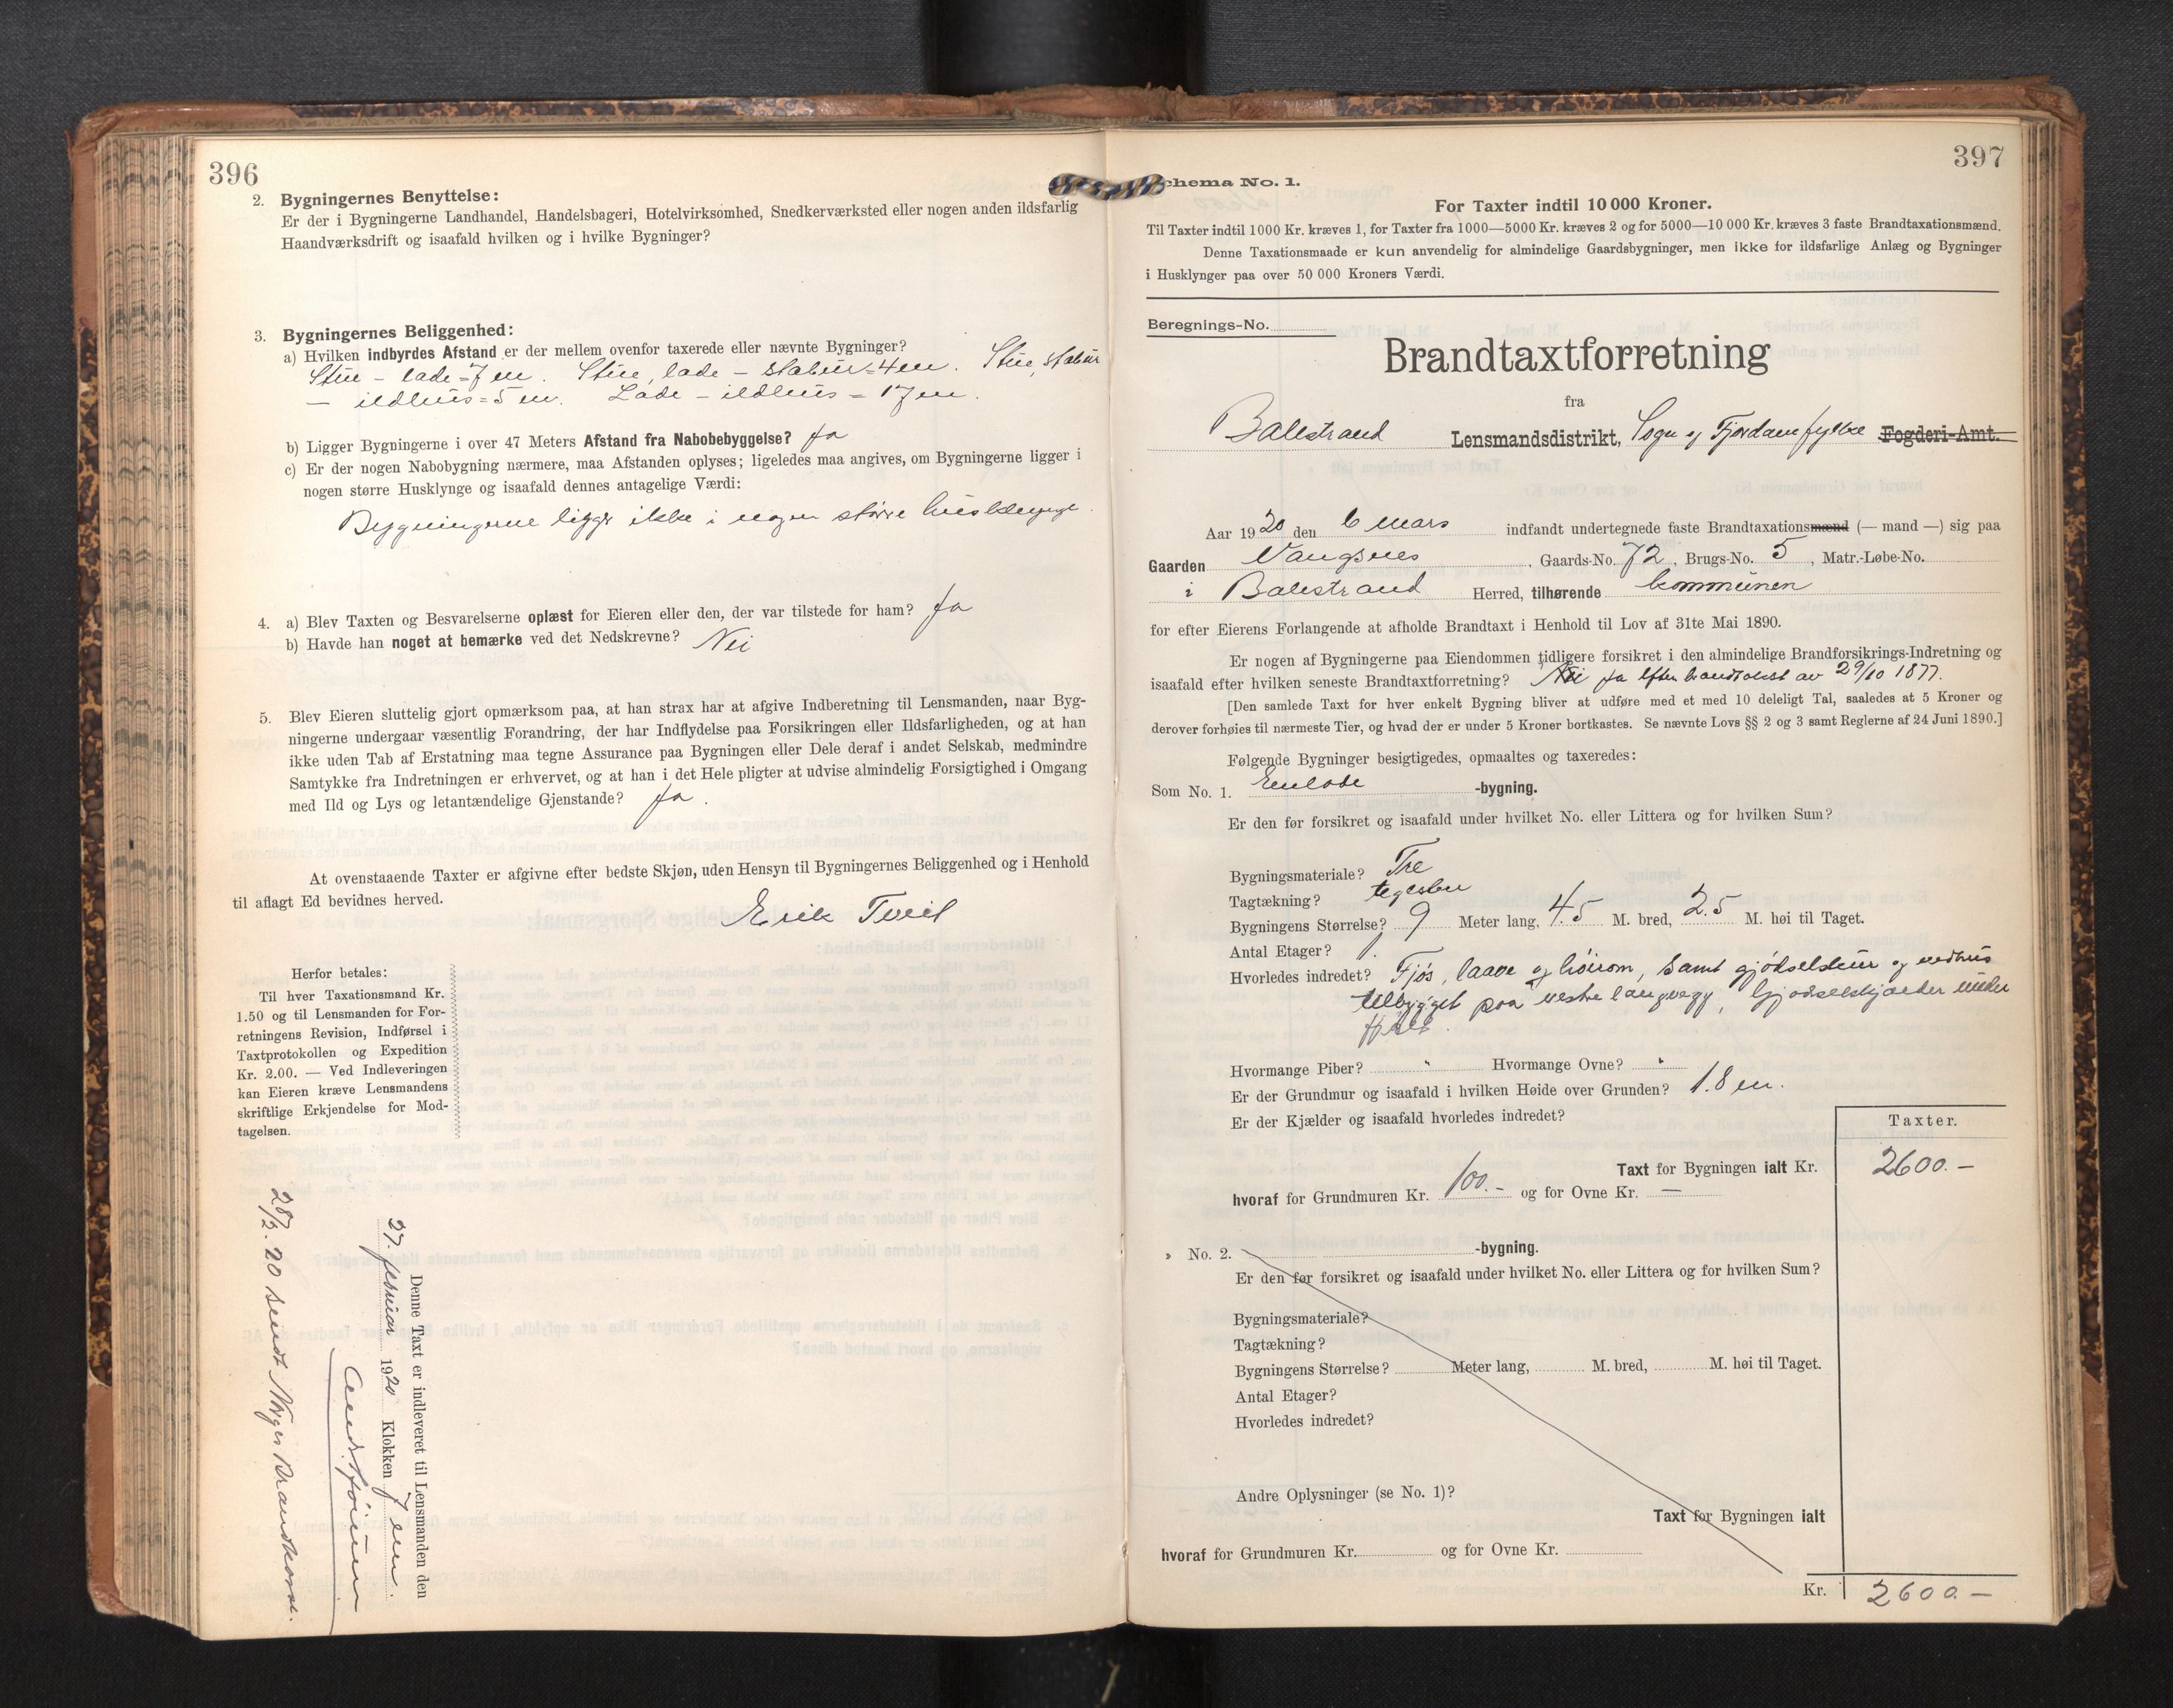 396
2. Bygningernes Benyttelse:
Er der i Bygningerne Landhandel, Handelsbageri, Hotelvirksomhed, Snedkerværksted eller nogen anden ildsfarlig
Haandværksdrift og isaafald hvilken og i hvilke Bygninger?
3. Bygningernes Beliggenhed:
a) Hvilken indbyrdes Afstand er der mellem ovenfor taxerede eller nævnte Bygninger?
Stue – lade = 7 m. Stue, lade – stabur = 4 m. Stue, stabur
– ildhus = 5 m. Lade – ildhus = 17 m.
b) Ligger Bygningerne i over 47 Meters Afstand fra Nabobebyggelse? Ja
c) Er der nogen Nabobygning nærmere, maa Afstanden oplyses; ligeledes maa angives, om Bygningerne ligger i
nogen større Husklynge og isaafald dennes antagelige Værdi:
Bygningerne ligger ikke i nogen større husklynge.
4. a) Blev Taxten og Besvarelserne oplæst for Eieren eller den, der var tilstede for ham? Ja
b) Havde han noget at bemærke ved det Nedskrevne? Nei
5. Blev Eieren sluttelig gjort opmærksom paa, at han strax har at afgive Indberetning til Lensmanden, naar Byg-
ningerne undergaar væsentlig Forandring, der har Indflydelse paa Forsikringen eller Ildsfarligheden, og at han
ikke uden Tab af Erstatning maa tegne Assurance paa Bygningen eller Dele deraf i andet Selskab, medmindre
Samtykke fra Indretningen er erhvervet, og at han i det Hele pligter at udvise almindelig Forsigtighed i Omgang
med Ild og Lys og letantændelige Gjenstande? Ja.
At ovenstaaende Taxter er afgivne efter bedste Skjøn, uden Hensyn til Bygningernes Beliggenhed og i Henhold
til aflagt Ed bevidnes herved.
Erik Tveit
Herfor betales:
Til hver Taxationsmand Kr.
1.50 og til Lensmanden for For-
retningens Revision, Indførsel i
Taxtprotokollen og Expedition
Kr. 2.00. — Ved Indleveringen
kan Eieren kræve Lensmandens
skriftlige Erkjendelse for Mod-
tagelsen.
Denne Taxt er indleveret til Lensmanden den
27. februar 1920 Klokken 7 em.
28/2. 20 sendt Norges Brandkasse.
397
chema No. 1.
For Taxter indtil 10 000 Kroner.
Til Taxter indtil 1000 Kr. kræves 1, for Taxter fra 1000—5000 Kr. kræves 2 og for 5000—10 000 Kr. kræves 3 faste Brandtaxationsmænd.
Denne Taxationsmaade er kun anvendelig for almindelige Gaardsbygninger, men ikke for ildsfarlige Anlæg og Bygninger
i Husklynger paa over 50 000 Kroners Værdi.
Beregnings-No.
Brandtaxtforretning
fra
Balestrand Lensmandsdistrikt, Sogn og Fjordane fylke Fogderi-Amt.
Aar 1920 den 6 mars indfandt undertegnede faste Brandtaxationsmænd (— mand —) sig paa
Gaarden Vangsnes, Gaards-No. 72, Brugs-No. 5, Matr.-Løbe-No.
i Balestrand Herred, tilhørende kommunen
for efter Eierens Forlangende at afholde Brandtaxt i Henhold til Lov af 31te Mai 1890.
Er nogen af Bygningerne paa Eiendommen tidligere forsikret i den almindelige Brandforsikrings-Indretning og
isaafald efter hvilken seneste Brandtaxtforretning? Nei Ja Efter brandtakst av 29/10 1877.
[Den samlede Taxt for hver enkelt Bygning bliver at udføre med et med 10 deleligt Tal, saaledes at 5 Kroner og
derover forhøies til nærmeste Tier, og hvad der er under 5 Kroner bortkastes. Se nævnte Lovs §§ 2 og 3 samt Reglerne af 24 Juni 1890.]
Følgende Bygninger besigtigedes, opmaaltes og taxeredes:
Som No. 1. Enlade -bygning.
Er den før forsikret og isaafald under hvilket No. eller Littera og for hvilken Sum?
Bygningsmateriale? Tre
Tagtækning? teglsten
Bygningens Størrelse? 9 Meter lang, 4.5 M. bred, 2.5 M. høi til Taget.
Antal Etager? 1.
Hvorledes indredet? Fjøs, laave og høirom, samt gjødselskur og vedhus
tilbygget paa vestre langvegg, Gjødselskjælder under
fjøset.
Hvormange Piber? " Hvormange Ovne? "
Er der Grundmur og isaafald i hvilken Høide over Grunden? 1.8 m.
Er der Kjælder og isaafald hvorledes indredet?
Taxter.
Taxt for Bygningen ialt Kr. 2600.–
hvoraf for Grundmuren Kr. 100.– og for Ovne Kr. —
» No. 2. -bygning.
Er den før forsikret og isaafald under hvilket No. eller Littera og for hvilken Sum?
Bygningsmateriale?
Tagtækning?
Bygningens Størrelse? Meter lang, M. bred, M. høi til Taget.
Antal Etager?
Hvorledes indredet?
Andre Oplysninger (se No. 1)?
Taxt for Bygningen ialt
hvoraf for Grundmuren Kr. og for Ovne Kr.
Kr. 2600.–